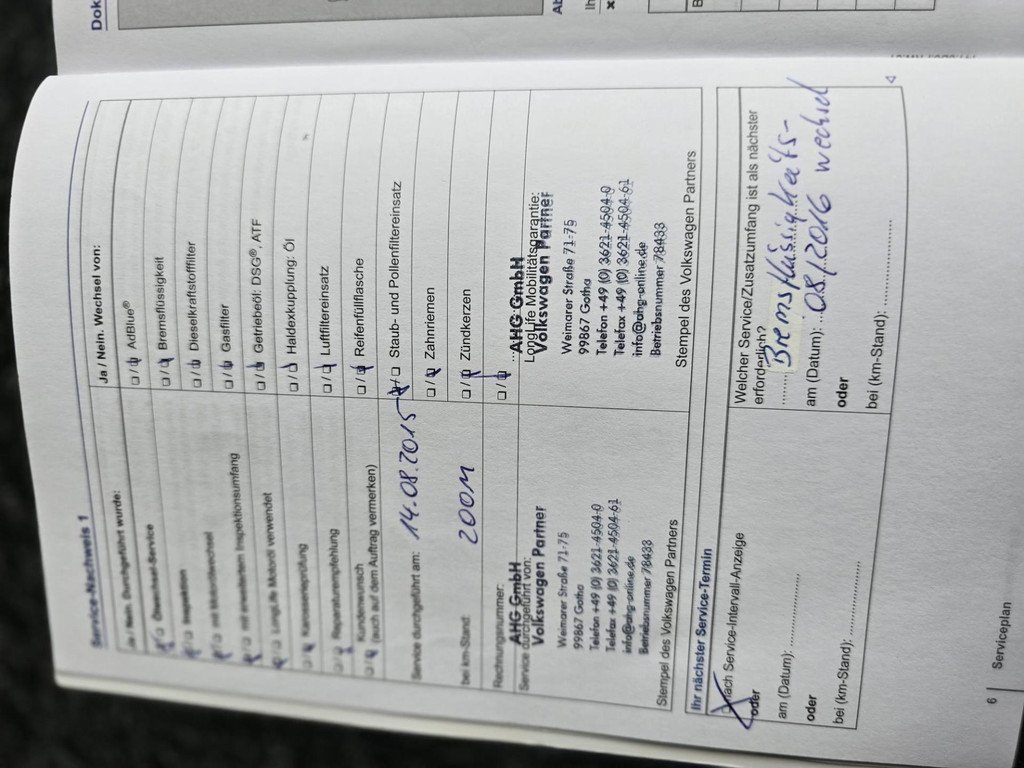 Dok
Service-Nachweis 1
Ja / Nein. Durchgeführt wurde:
Ölwechsel-Service
Inspektion
mit Motorölwechsel
mit erweitertem Inspektionsumfang
LongLife Motoröl verwendet
Karosserieprüfung
Reparaturempfehlung
Kundenwunsch
(auch auf dem Auftrag vermerken)
Service durchgeführt am: 14.08.2015
bei km-Stand: 200M
Rechnungsnummer:
Service durchgeführt von:
AHG GmbH
Volkswagen Partner
Weimarer Straße 71-75
99867 Gotha
Telefon +49 (0) 3621-4504-0
Telefax +49 (0) 3621-4504-61
info@ahg-online.de
Betriebsnummer 78433
Stempel des Volkswagen Partners
Ja / Nein. Wechsel von:
AdBlue®
Bremsflüssigkeit
Dieselkraftstofffilter
Gasfilter
Getriebeöl: DSG®, ATF
Haldexkupplung: Öl
Luftfiltereinsatz
Reifenfüllflasche
Staub- und Pollenfiltereinsatz
Zahnriemen
Zündkerzen
LongLife Mobilitätsgarantie:
AHG GmbH
Volkswagen Partner
Weimarer Straße 71-75
99867 Gotha
Telefon +49 (0) 3621-4504-0
Telefax +49 (0) 3621-4504-61
info@ahg-online.de
Betriebsnummer 78433
Stempel des Volkswagen Partners
Ihr nächster Service-Termin
nach Service-Intervall-Anzeige
oder
am (Datum):
oder
bei (km-Stand):
Welcher Service/Zusatzumfang ist als nächster
erforderlich?
Bremsflüssigkeits-
am (Datum): 08/2016 wechsel
oder
bei (km-Stand):
6 Serviceplan